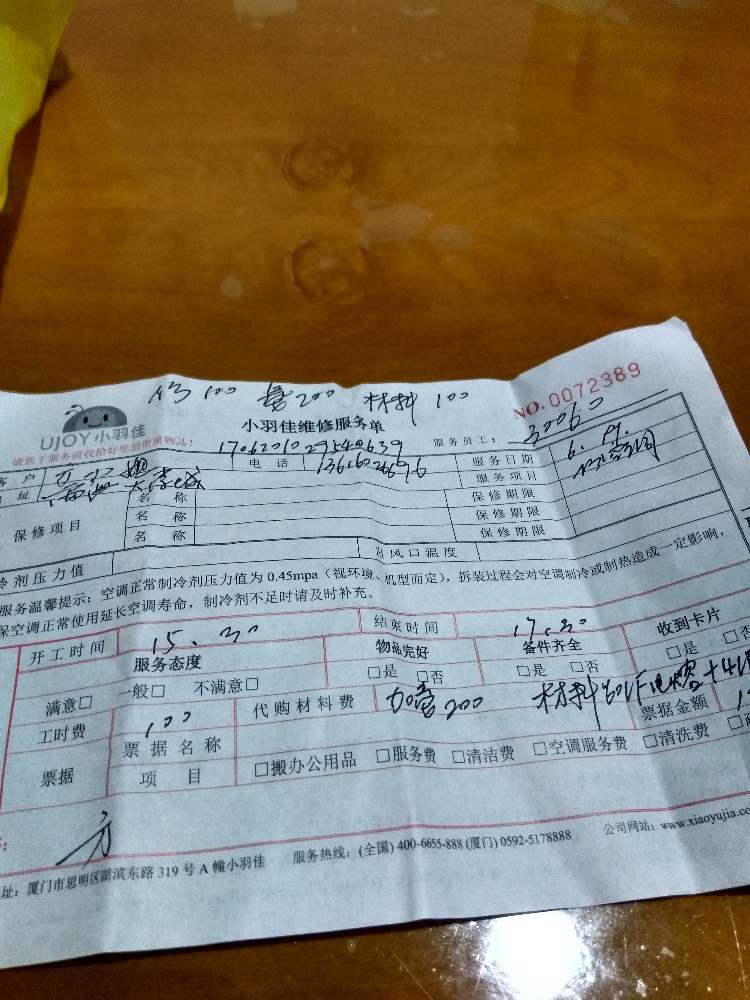 100 200 材料 100
NO. 0072389
UJOY小羽佳
小羽佳维修服务单
请您于服务前收拾好您的贵重物品!
1706201029540639
服务员工: 30060
户
电话
服务日期 6.19.
址
服务项目
保修项目 名称 保修期限
名称 保修期限
名称 保修期限
冷剂压力值 风口温度
服务温馨提示:空调正常制冷剂压力值为 0.45mpa(视环境、机型而定),拆装过程会对空调制冷或制热造成一定影响,
保空调正常使用延长空调寿命,制冷剂不足时请及时补充。
开工时间 15.30 结束时间 17.30
服务态度 物品完好 备件齐全 收到卡片
满意□ 一般□ 不满意□ □是 □否 □是 □否 □是 □否
工时费 100 代购材料费 加雪200 材料 票据金额
票据 票据名称
项目 □搬办公用品 □服务费 □清洁费 □空调服务费 □清洗费
方
址:厦门市思明区湖滨东路 319 号 A 幢小羽佳 服务热线:(全国) 400-6655-888 (厦门) 0592-5178888 公司网站:www.xiaoyujia.co